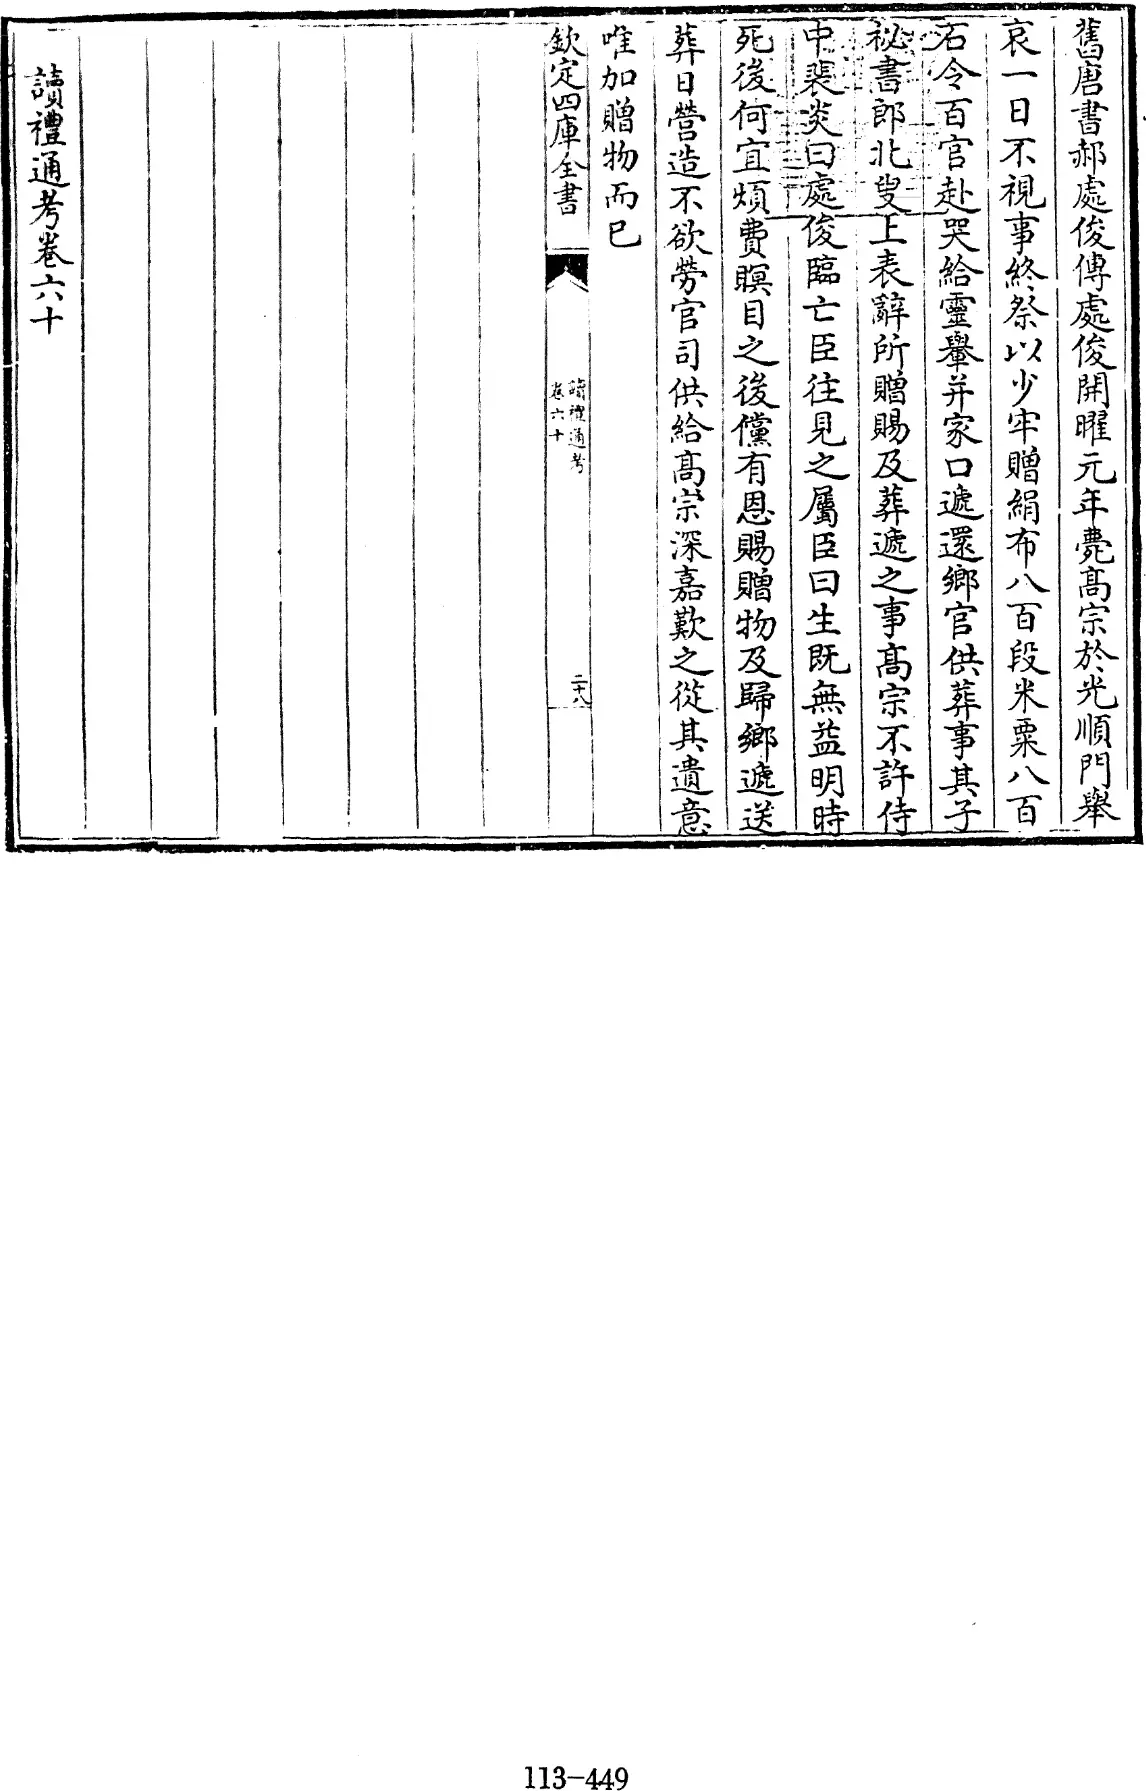 舊唐書郝處俊傳處俊開曜元年薨髙宗於光順門舉
哀一日不視事終祭以少牢贈絹布八百段米粟八百
石令百官赴哭給靈轝并家口遞還鄉官供葬事其子
祕書郎北叟上表辭所贈賜及葬遞之事髙宗不許侍
中裴炎曰處俊臨亡臣往見之屬臣曰生既無益明時
死後何宜煩費瞑目之後儻有恩賜贈物及歸鄉遞送
葬日營造不欲勞官司供給髙宗深嘉歎之從其遺意
唯加贈物而已
欽定四庫全書
讀禮通考
卷六十
二十八
讀禮通考卷六十
113-449